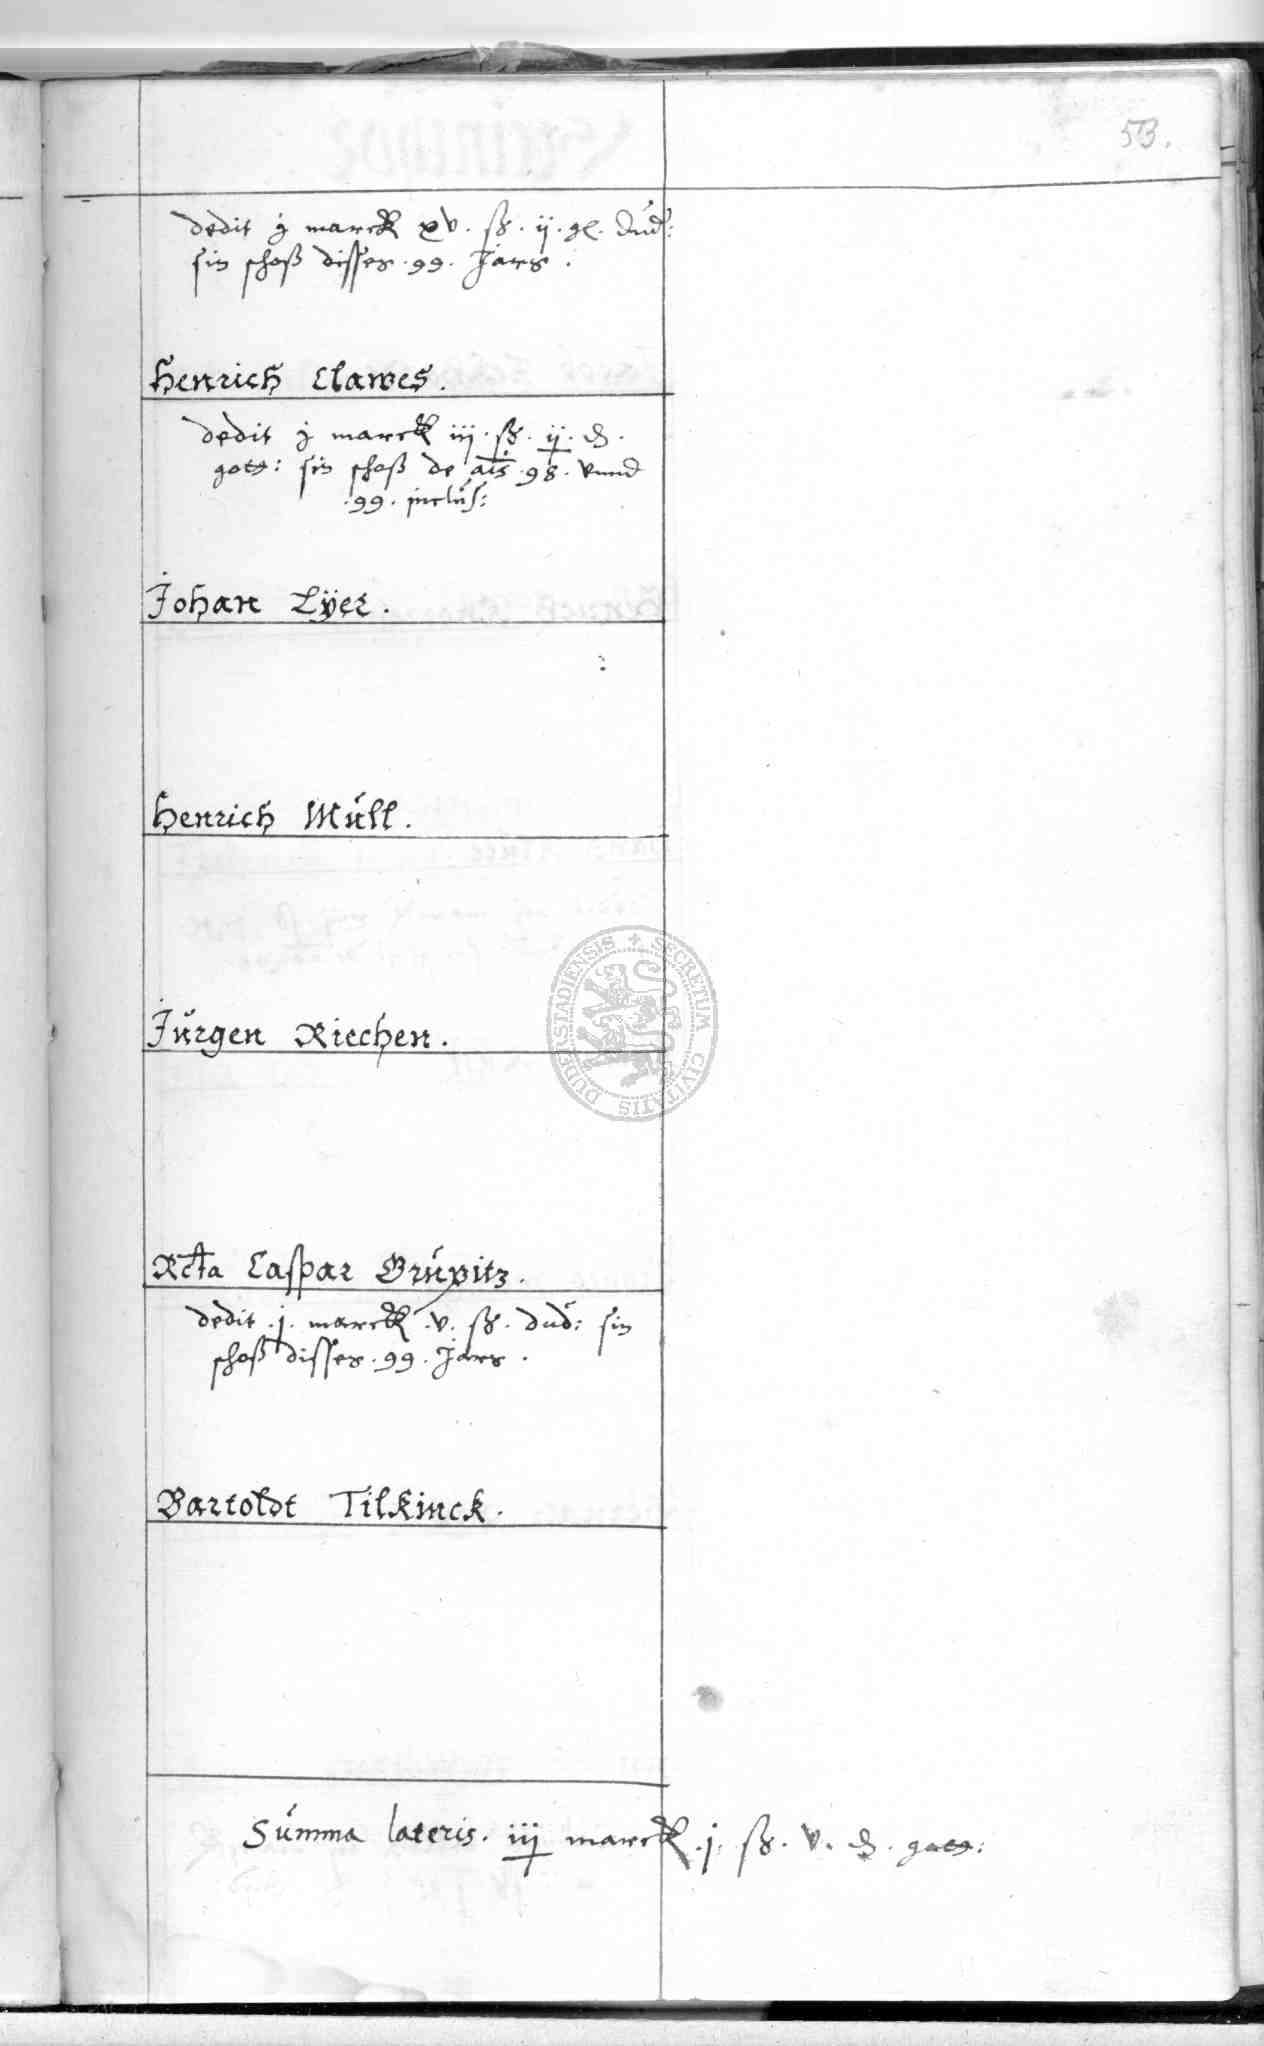 53.
dedit j marck xv. ß. ij. gl. dud:
sin schoß disses .99. Jars.
Henrich Clawes.
dedit j marck iij. ß. ij. d.
gots: sin schoß de a̅i̅s̅ .98. vnnd
.99. inclus:
Johan Lÿer.
Henrich Müll.
Jürgen Riechen.
Rcta Caspar Grüpitz.
dedit .j. marck .v. ß. dud: sin
schoß disses .99. Jars.
Bartoldt Tilkinck.
Summa lateris. iij marck .j. ß. v. d. gots:
SECRETUM CIVITATIS DUDERSTADIENSIS